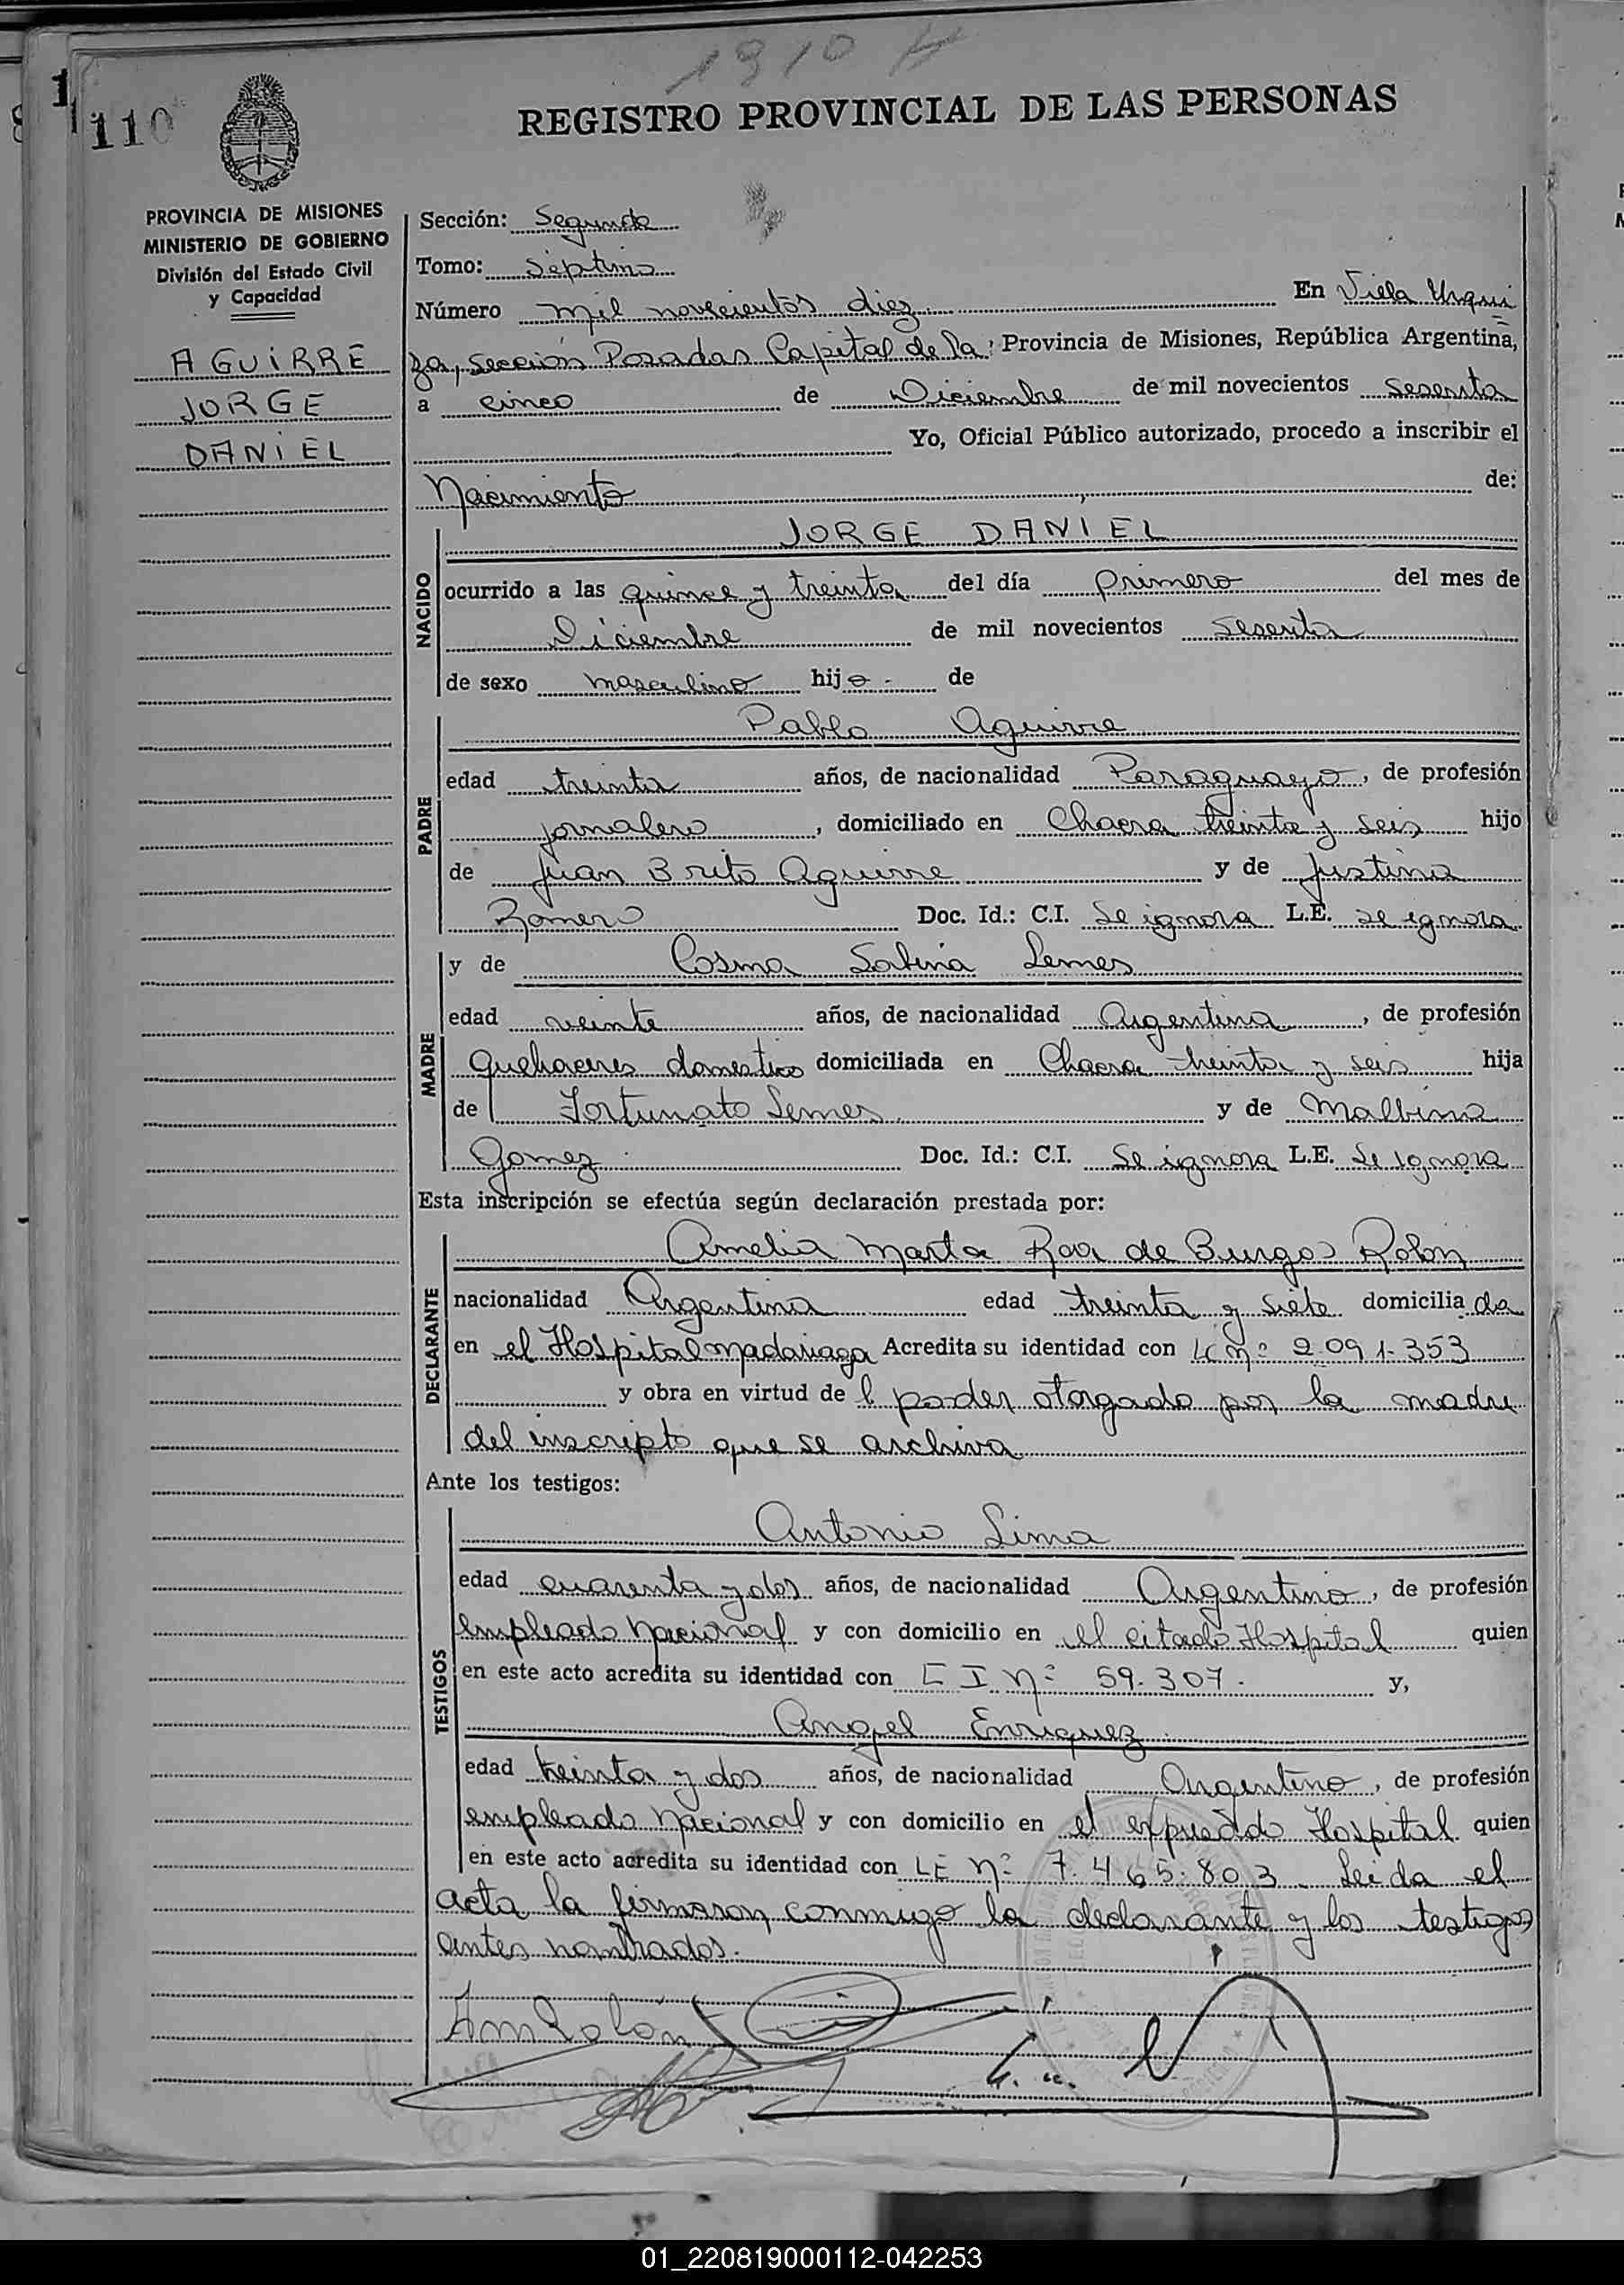 1910
110
REGISTRO PROVINCIAL DE LAS PERSONAS
PROVINCIA DE MISIONES
MINISTERIO DE GOBIERNO
División del Estado Civil
y Capacidad
AGUIRRE
JORGE
DANIEL
Sección: Segunda
Tomo: Séptimo
Número mil novecientos diez En Villa Urqui
za, sección Posadas Capital de la Provincia de Misiones, República Argentina,
a cinco de Diciembre de mil novecientos sesenta
Yo, Oficial Público autorizado, procedo a inscribir el
Nacimiento de:
NACIDO
JORGE DANIEL
ocurrido a las quince y treinta del día primero del mes de
Diciembre de mil novecientos sesenta
de sexo masculino hijo de
PADRE
Pablo Aguirre
edad treinta años, de nacionalidad Paraguayo, de profesión
jornalero, domiciliado en Chacra treinta y seis hijo
de Juan Brito Aguirre y de Justina
Romero Doc. Id.: C.I. Se ignora L.E. se ignora
MADRE
y de Cosma Sabina Lemes
edad veinte años, de nacionalidad Argentina, de profesión
Quehaceres domestico domiciliada en Chacra treinta y seis hija
de Fortunato Lemes y de Malbina
Gomez Doc. Id.: C.I. Se ignora L.E. Se ignora
Esta inscripción se efectúa según declaración prestada por:
DECLARANTE
Amelia Marta Roa de Burgos Rolon
nacionalidad Argentina edad treinta y siete domiciliada
en el Hospital Madariaga Acredita su identidad con LC Nº 2.091.353
y obra en virtud del poder otorgado por la madre
del inscripto que se archiva
Ante los testigos:
TESTIGOS
Antonio Lima
edad cuarenta y dos años, de nacionalidad Argentino, de profesión
empleado Nacional y con domicilio en el citado Hospital quien
en este acto acredita su identidad con C I Nº 59.307. y,
Angel Enriquez
edad treinta y dos años, de nacionalidad Argentino, de profesión
empleado Nacional y con domicilio en el expresado Hospital quien
en este acto acredita su identidad con LE Nº 7.465.803. Leida el
acta la firmaron conmigo la declarante y los testigos
antes nombrados.
01_220819000112-042253